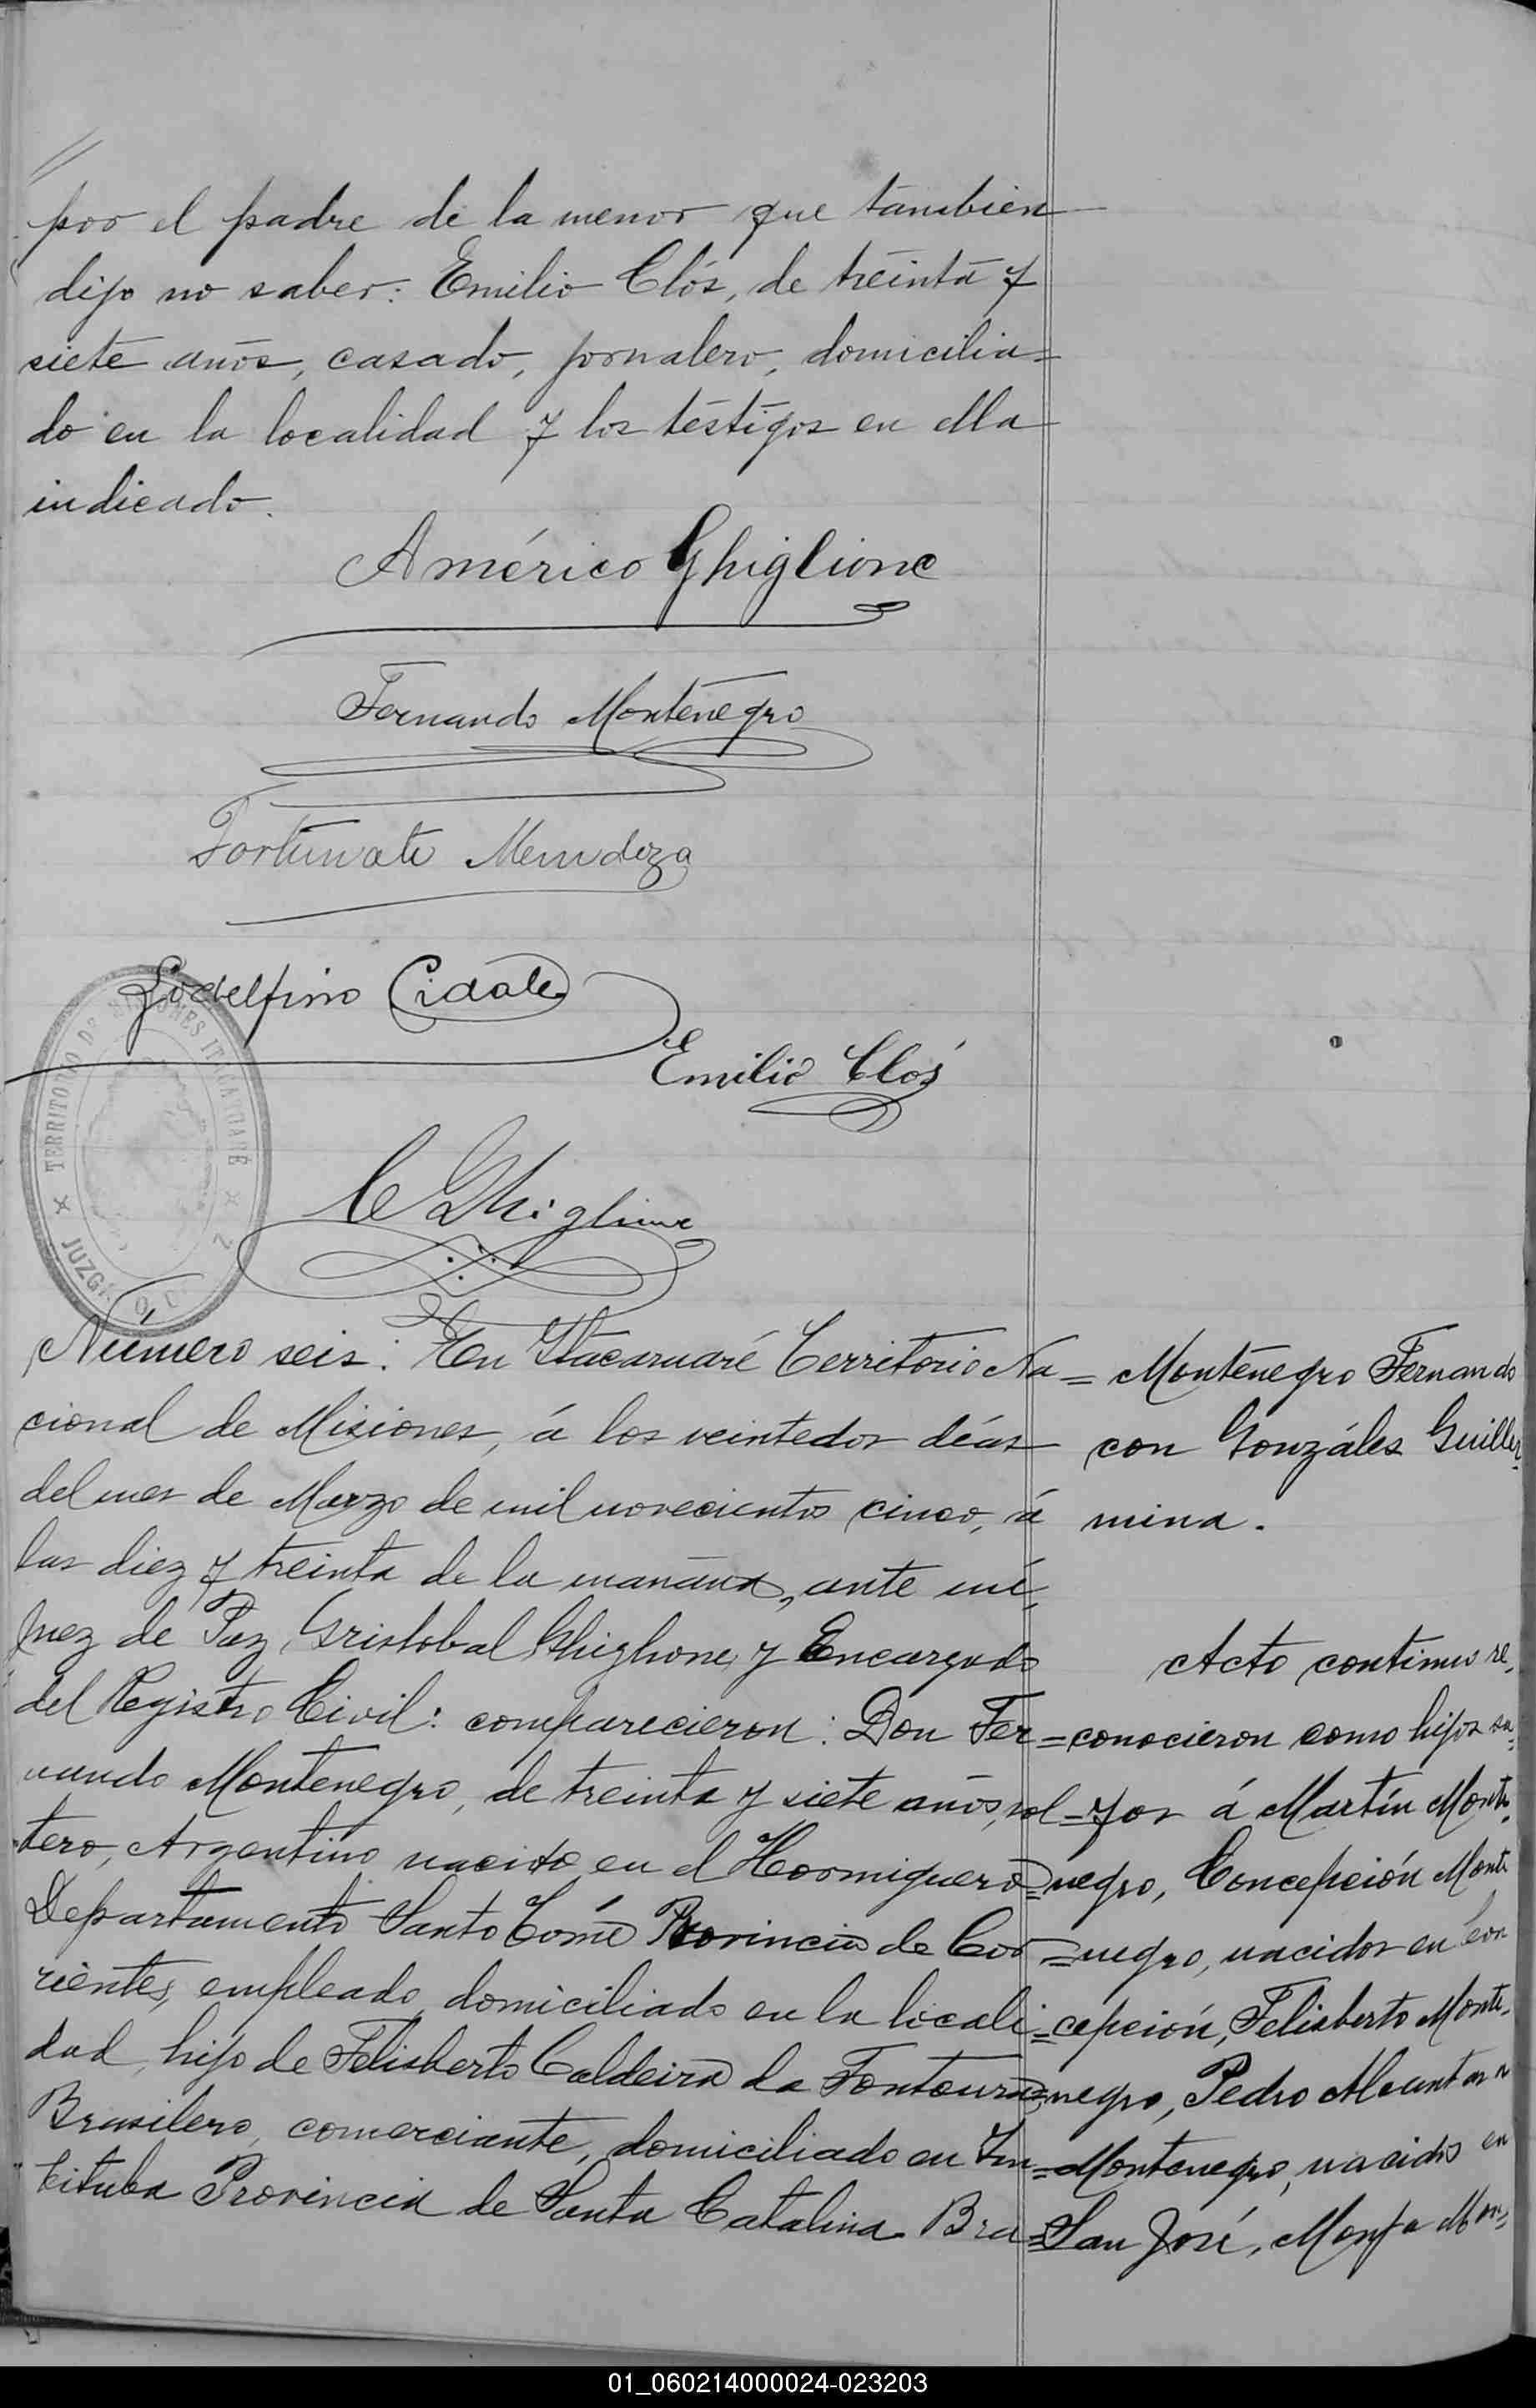 //
por el padre de la menor que tambien
dijo no saber: Emilio Clós, de treinta y
siete años, casado, jornalero, domicilia=
do en la localidad y los testigos en ella
indicado.
Américo Ghiglione
Fernando Montenegro
Fortunato Mendoza
Godelfino Cidale
Emilio Clós
C Ghiglione
TERRITORIO DE MISIONES ITACARUARÉ
JUZGADO DE
Número seis: En Itacaruaré Territorio Na=
cional de Misiones, á los veintedos días
del mes de Marzo de mil novecientos cinco, á
las diez y treinta de la mañana, ante mí,
Juez de Paz, Cristobal Ghiglione, y Encargado
del Registro Civil: comparecieron: Don Fer=
nando Montenegro, de treinta y siete años, sol=
tero, Argentino nacido en el Hormiguero=
Departamento Santo Tomé Provincia de Cor=
rientes, empleado, domiciliado en la locali=
dad, hijo de Felisberto Caldeira da Fontoura=
Brasilero, comerciante, domiciliado en Im=
bituba Provincia de Santa Catalina Bra=
Montenegro Fernando
con Gonzáles Guiller=
mina.
Acto continuo re=
conocieron como hijos su=
yos á Martín Monte=
negro, Concepción Monte
negro, nacidos en Con
cepción, Felisberto Monte=
negro, Pedro Alcantara
Montenegro, nacidos en
San José, Mon=
01_060214000024-023203